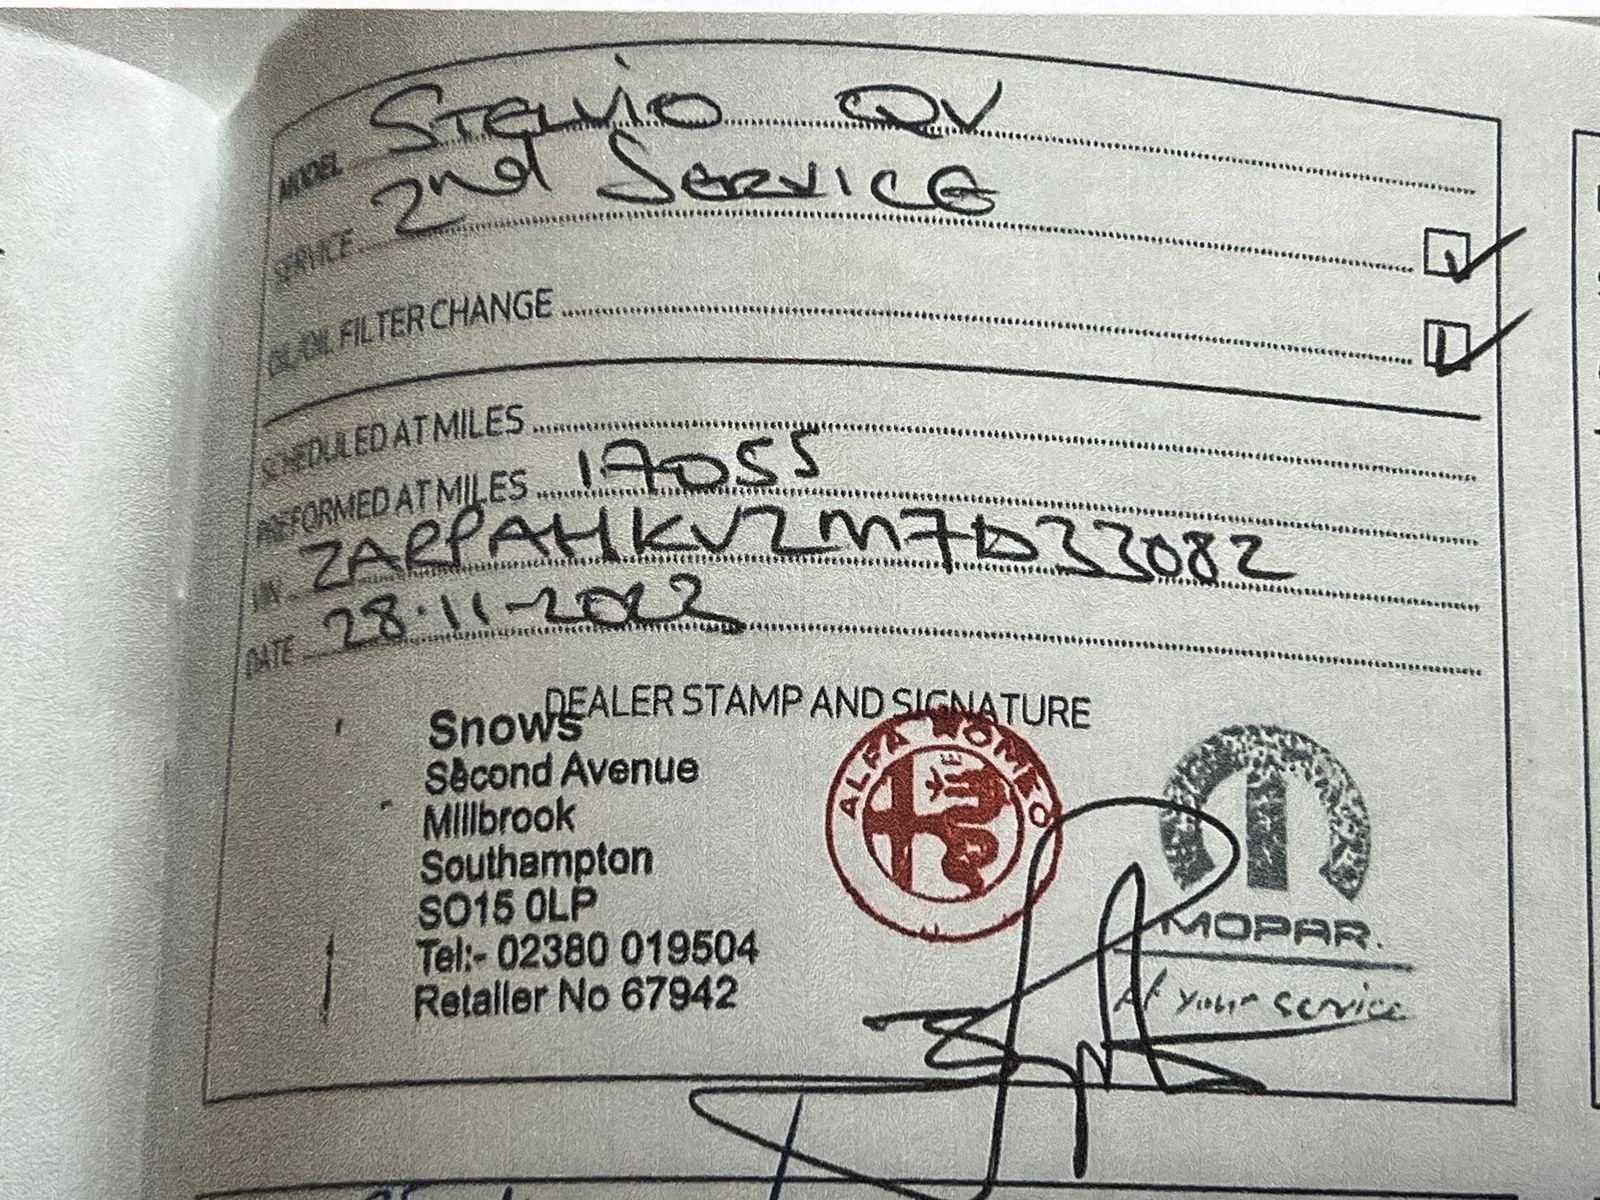 MODEL STELVIO QV
SERVICE 2nd SERVICE
OIL/OIL FILTER CHANGE
SCHEDULED AT MILES
PREFORMED AT MILES 17055
VIN ZARPAHKVZM7D33082
DATE 28.11-2023
DEALER STAMP AND SIGNATURE
Snows
Second Avenue
Millbrook
Southampton
SO15 0LP
Tel:- 02380 019504
Retailer No 67942
ALFA ROMEO
MOPAR.
At your service